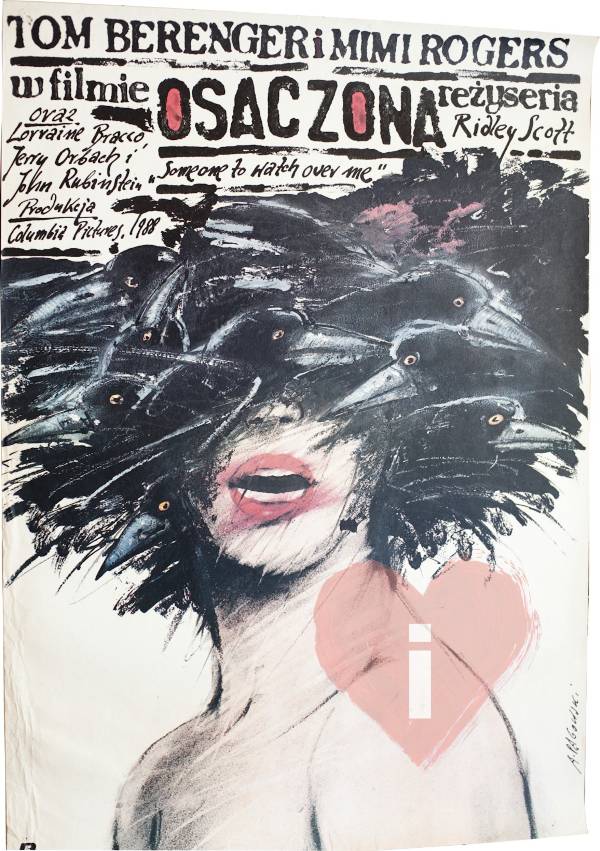 TOM BERENGER i MIMI ROGERS
w filmie OSACZONA reżyseria
oraz
Ridley Scott
Lorraine Bracco
Jerry Orbach i
John Rubinstein „Someone to watch over me"
Produkcja
Columbia Pictures, 1988
i